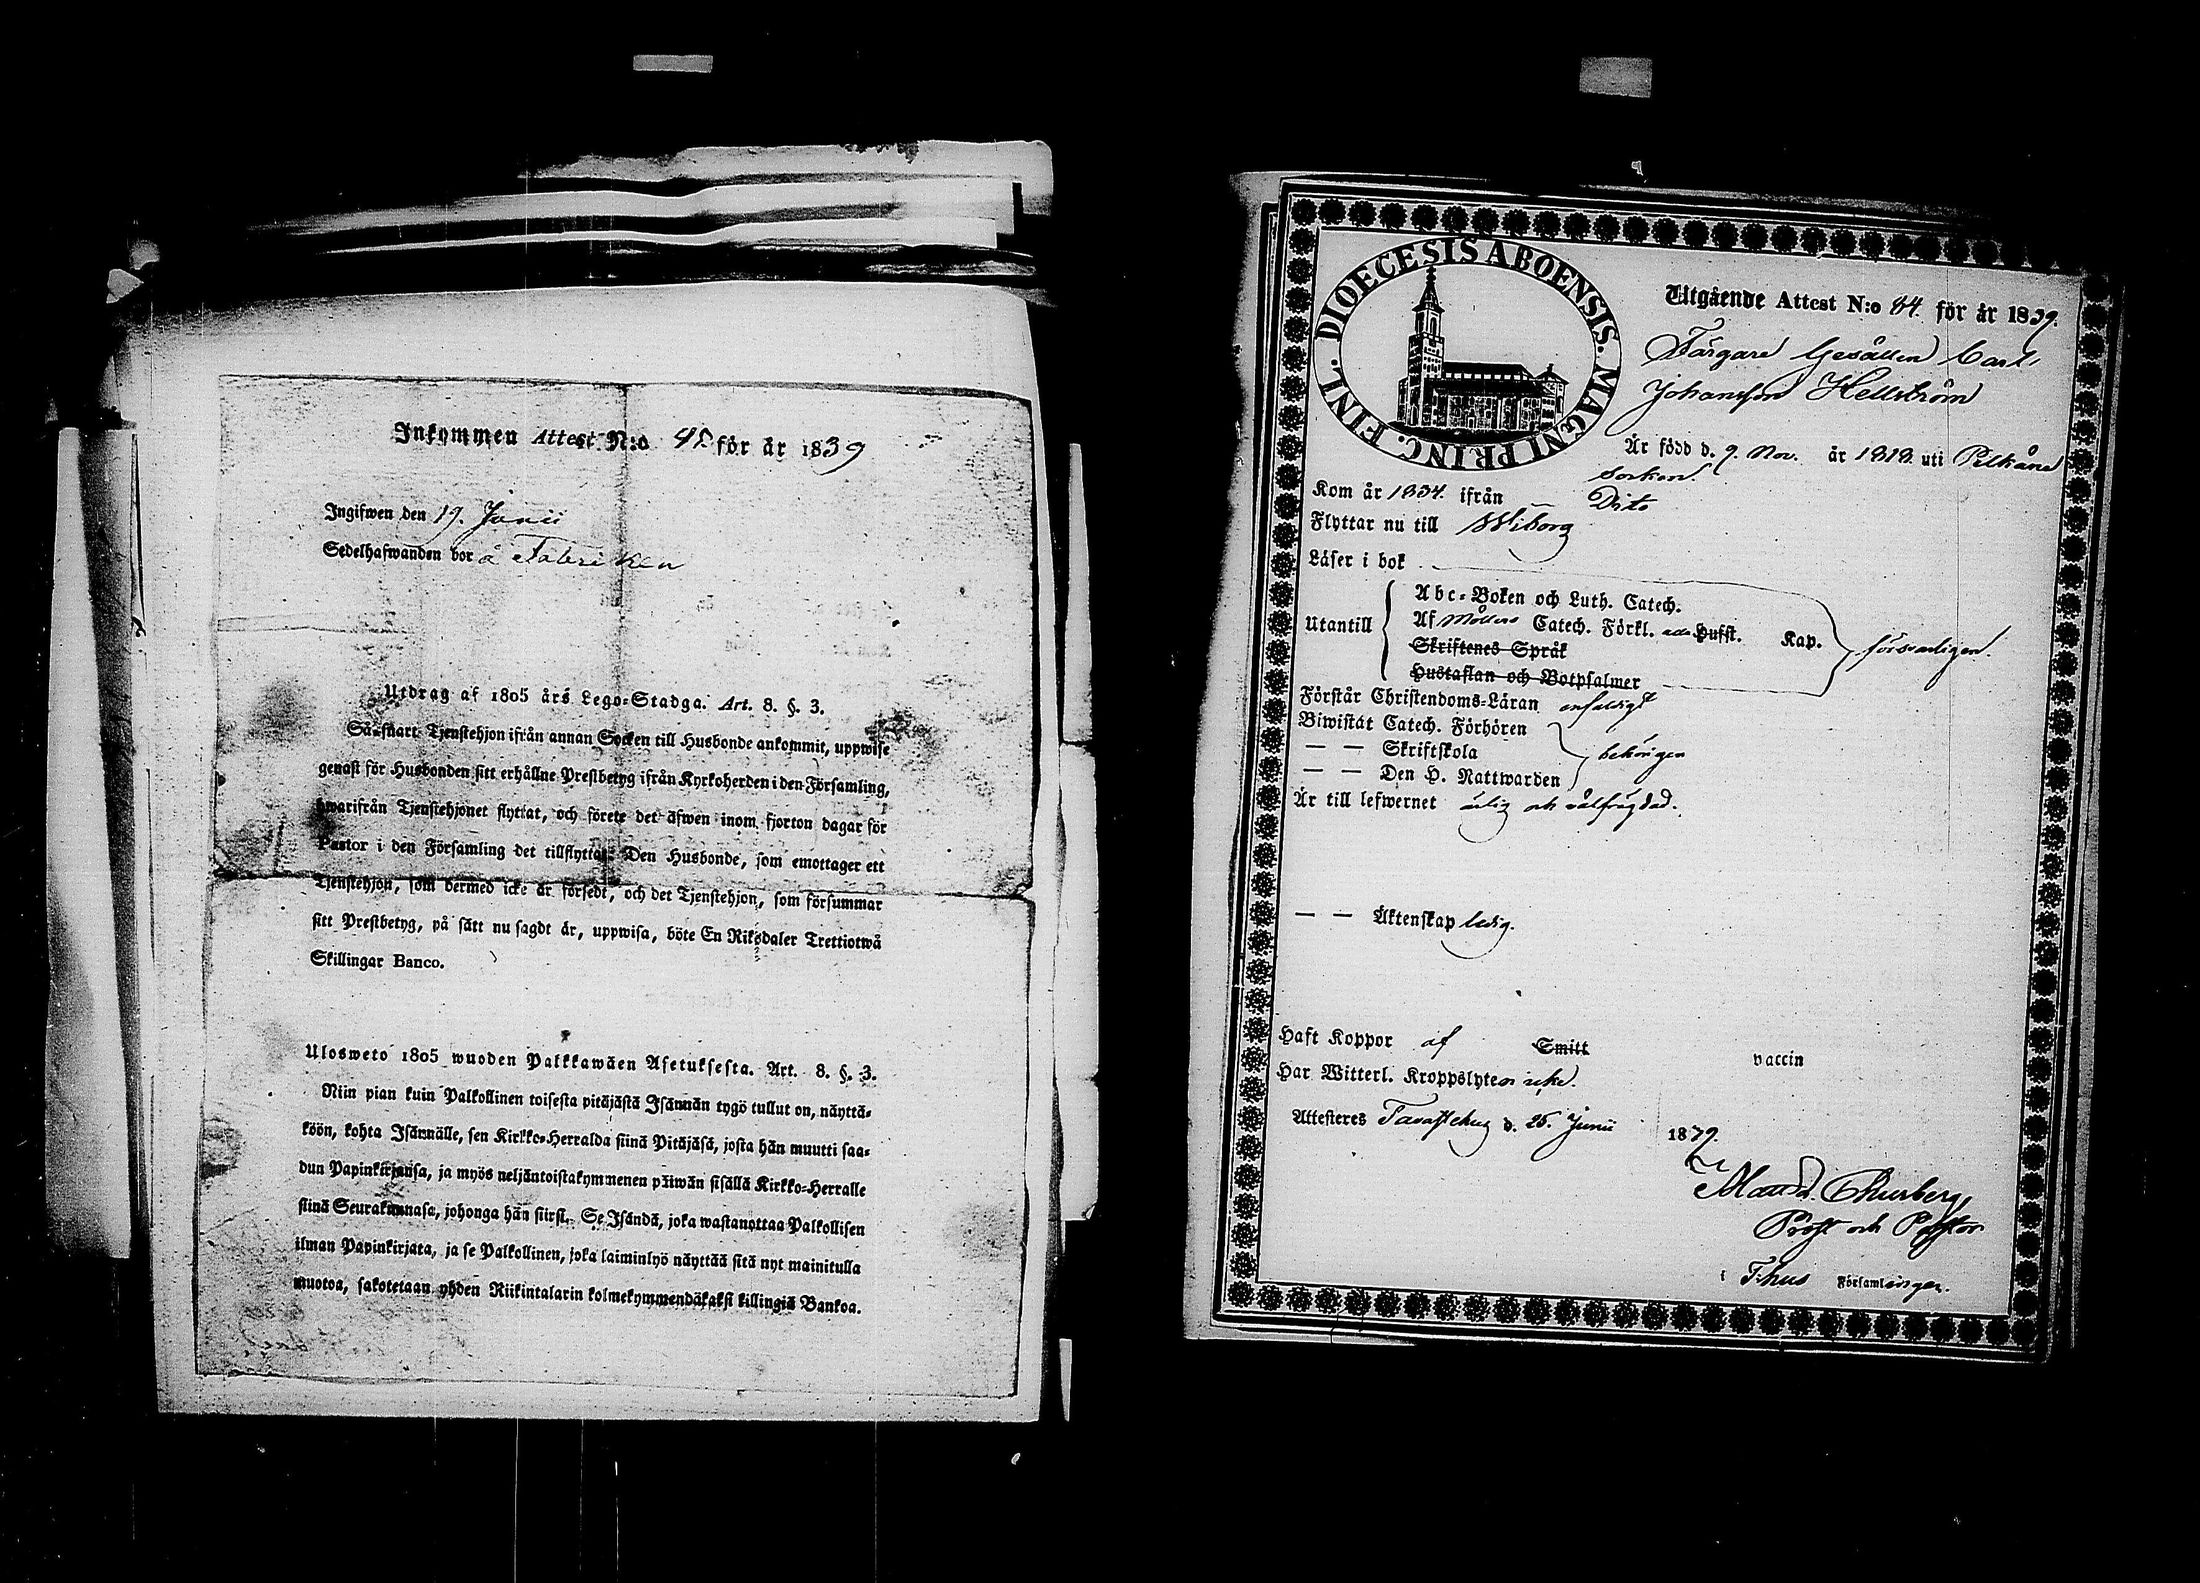 Inkommen Attest N:o 41 för år 1839
Ingifwen den 19. Junii
Sedelhafwanden bor å Fabriken
Utdrag af 1805 års Lego-Stadga. Art. 8. §. 3.
Så snart Tjenstehjon ifrån annan Socken till Husbonde ankommit, uppwise
genast för Husbonden sitt erhållne Prestbetyg ifrån Kyrkoherden i den Församling,
hwarifrån Tjenstehjonet flyttat, och förete det äfwen inom fjorton dagar för
Pastor i den Församling det tillflyttat. Den Husbonde, som emottager ett
Tjenstehjon, som dermed icke är försedt, och det Tjenstehjon, som försummar
sitt Prestbetyg, på sätt nu sagdt är, uppwisa, böte En Riksdaler Trettiotwå
Skillingar Banco.
Ulosweto 1805 wuoden Palkkawäen Asetuksesta. Art. 8. §. 3.
Niin pian kuin Palkollinen toisesta pitäjästä Isännän tygö tullut on, näyttä-
köön, kohta Isännälle, sen Kirkko-Herralda siinä Pitäjäsä, josta hän muutti saa-
dun Papinkirjansa, ja myös neljäntoistakymmenen päiwän sisällä Kirkko-Herralle
siinä Seurakunnasa, johonga hän siirsi. Se Isändä, joka wastanottaa Palkollisen
ilman Papinkirjata, ja se Palkollinen, joka laiminlyö näyttää sitä nyt mainitulla
muotoa, sakotetaan yhden Riikintalarin kolmekymmendäkaksi killingiä Bankoa.
DIOECESIS ABOENSIS. MAGNI PRINC. FINL.
Utgående Attest N:o 84 för år 1839.
Färgare Gesällen Carl
Johansson Hellström
Är född d. 9. Nov. år 1818. uti Pelkäne
Socken.
Kom år 1834. ifrån Dito
Flyttar nu till Wiborg
Läser i bok
Utantill
Abc-Boken och Luth. Catech.
Af Möllers Catech. Förkl. alla Hufst. Kap. försvarligen.
Skriftenes Språk
Hustaflan och Botpsalmer
Förstår Christendoms-Läran enfaldigt
Biwistat Catech. Förhören
— — Skriftskola behörigen
— — Den H. Nattwarden
Är till lefwernet ärlig och välfrägdad.
— — Äktenskap ledig.
Haft Koppor af Smitt vaccin
Har Witterl. Kroppslyten icke.
Attesteres Tavastehus d. 25. Junii 1839.
Maur. d. Thurberg
Prost och Pastor
i T:hus Församlingen.